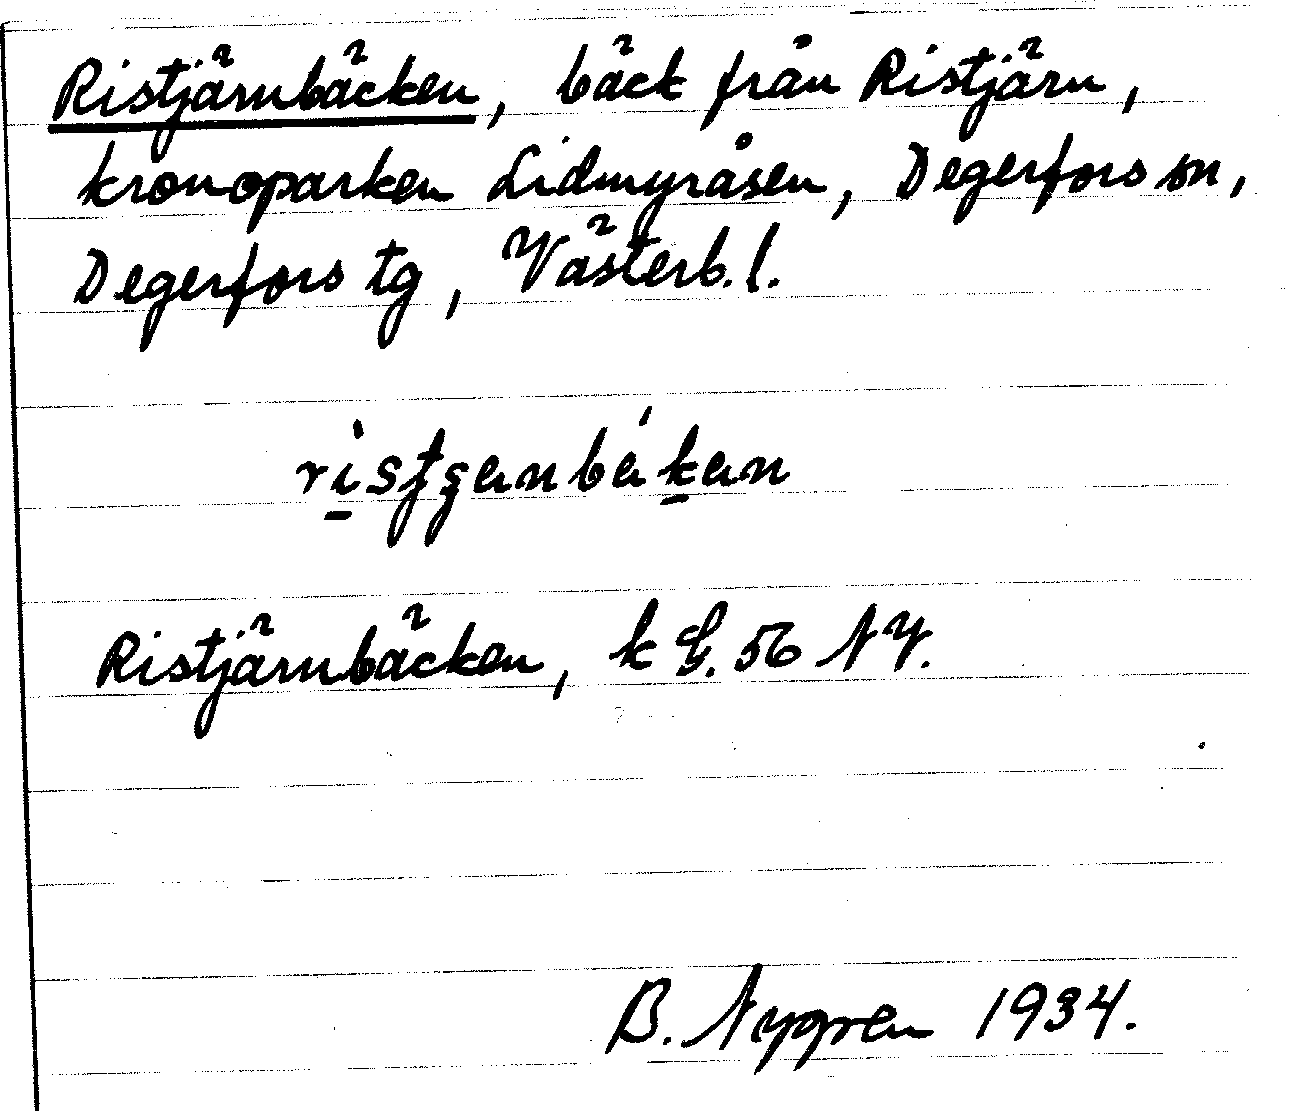 Ristjärnbäcken, bäck från Ristjärn,
kronoparken Lidmyråsen, Degerfors sn,
Degerfors tg, Västerb. l.
Ristjärnbäcken, k G. 56 NV.
B. Nygren 1934.